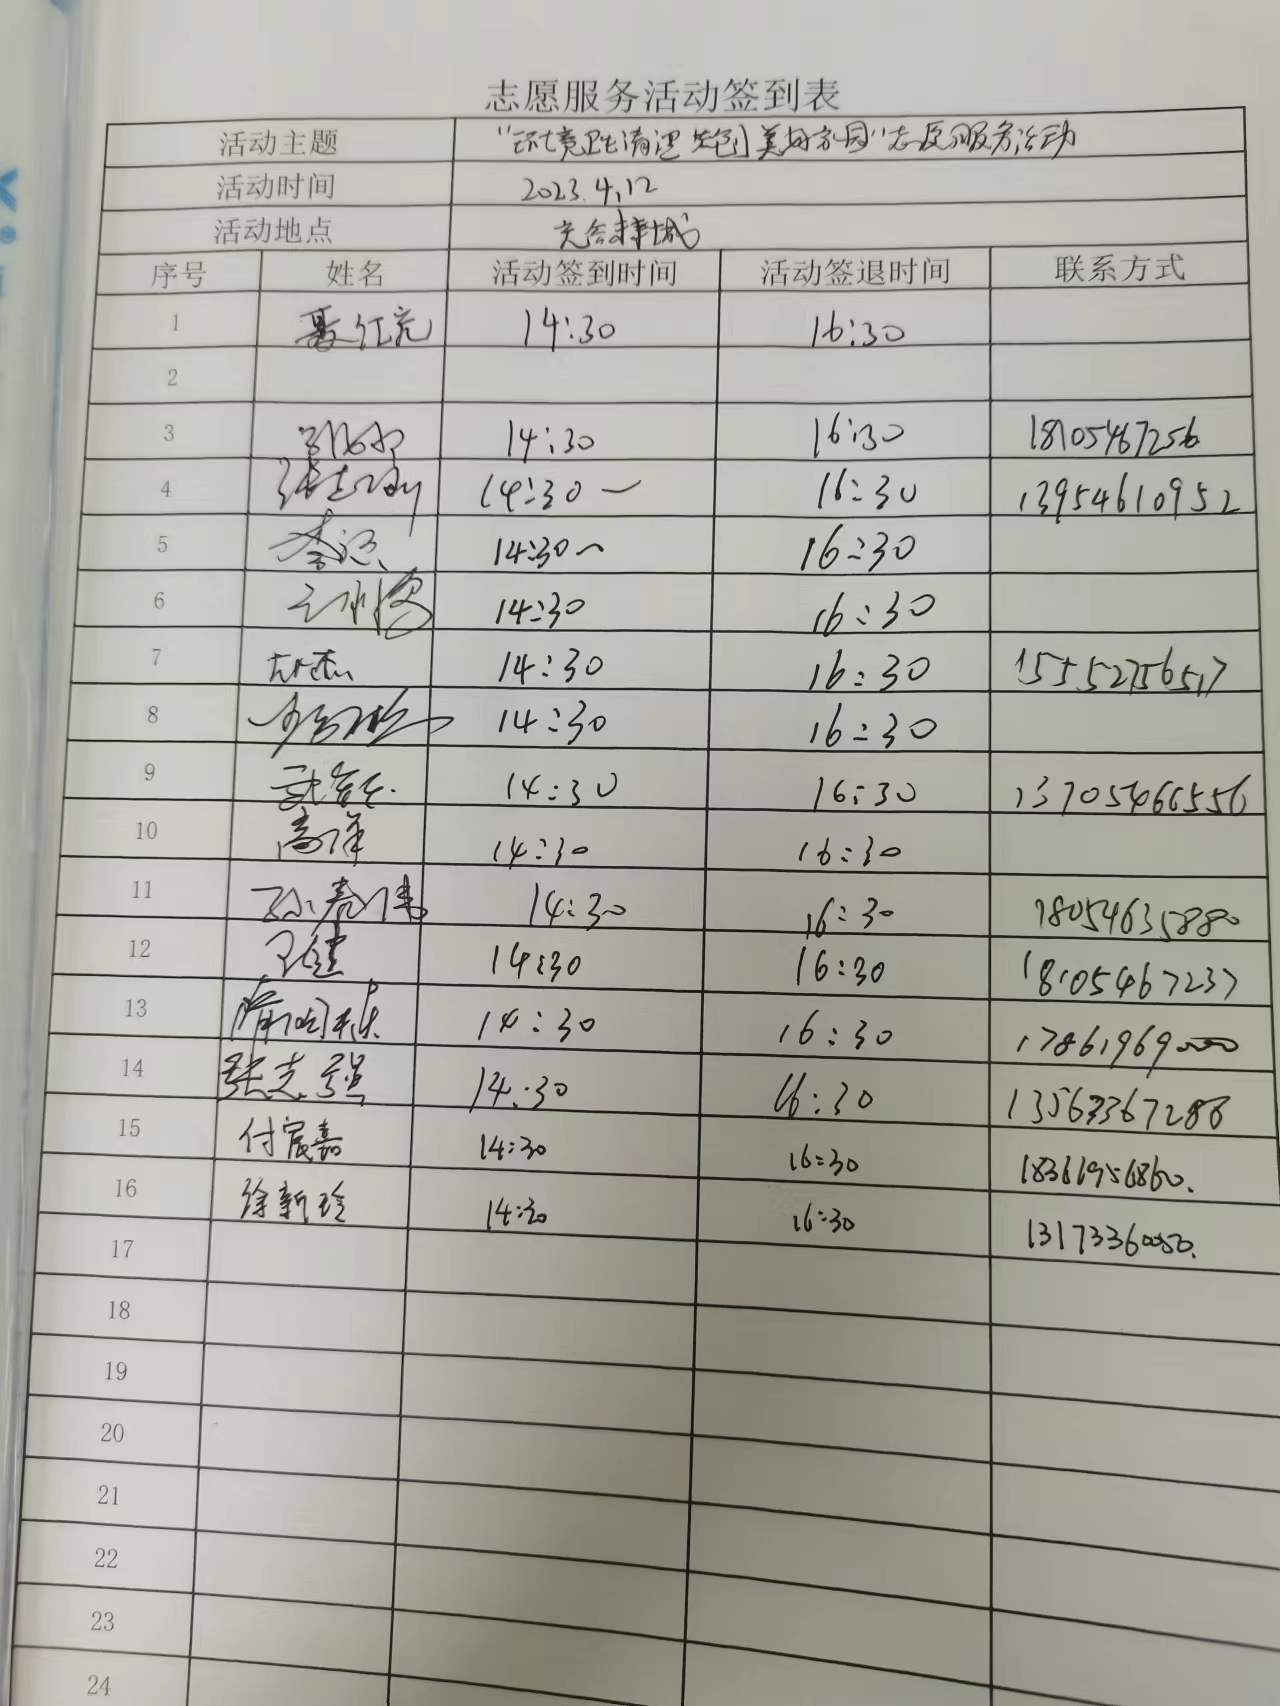 志愿服务活动签到表
活动主题 "环境卫生清理 共创美好家园"志愿服务活动
活动时间 2023.4.12
活动地点
序号 姓名 活动签到时间 活动签退时间 联系方式
1 14:30 16:30
2
3 14:30 16:30 18105467256
4 张志刚 14:30 16:30 13954610952
5 14:30 16:30
6 14:30 16:30
7 14:30 16:30 15552756517
8 14:30 16:30
9 14:30 16:30 13705466556
10 高洋 14:30 16:30
11 孙亮伟 14:30 16:30 18054635880
12 王健 14:30 16:30 18105467237
13 14:30 16:30 17861969000
14 张志强 14:30 16:30 13563367288
15 付宸嘉 14:30 16:30 18366956860.
16 徐新玲 14:30 16:30 13173360050.
17
18
19
20
21
22
23
24